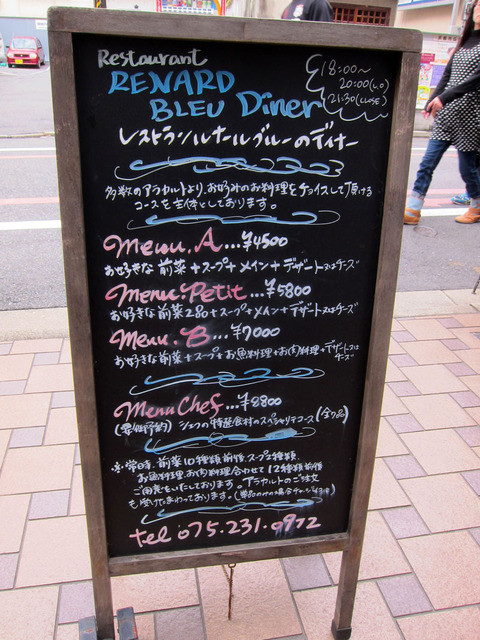 Restaurant
RENARD
BLEU Diner
18:00~
20:00(L.O)
21:30(CLOSE)
レストランルナールブルーのディナー
多数のアラカルトより、お好みのお料理をチョイスして頂ける
コースを主体としております。
Menu.A...¥4500
お好きな前菜+スープ+メイン+デザート又はチーズ
Menu.Petit...¥5800
お好きな前菜2品+スープ+メイン+デザート又はチーズ
Menu.B...¥7000
お好きな前菜+スープ+お魚料理+お肉料理+デザート又は
チーズ
Menu Chef...¥8800
(要御予約) シェフの特選食材のスペシャリテコース(全7品)
※常時、前菜10種類前後、スープ2種類、
お魚料理、お肉料理合わせて12種類前後
ご用意いたしております。アラカルトのご注文
も受けたまわっております。
tel 075.231.0972